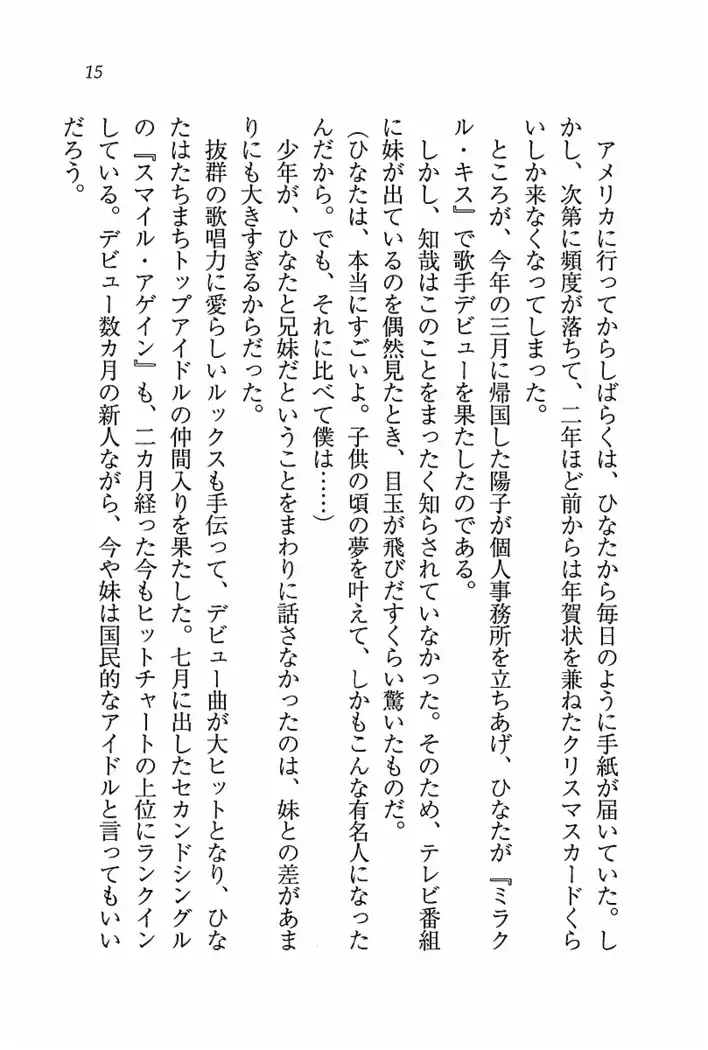 15
　アメリカに行ってからしばらくは、ひなたから毎日のように手紙が届いていた。し
かし、次第に頻度が落ちて、二年ほど前からは年賀状を兼ねたクリスマスカードくら
いしか来なくなってしまった。
　ところが、今年の三月に帰国した陽子が個人事務所を立ちあげ、ひなたが『ミラク
ル・キス』で歌手デビューを果たしたのである。
　しかし、知哉はこのことをまったく知らされていなかった。そのため、テレビ番組
に妹が出ているのを偶然見たとき、目玉が飛びだすくらい驚いたものだ。
（ひなたは、本当にすごいよ。子供の頃の夢を叶えて、しかもこんな有名人になった
んだから。でも、それに比べて僕は……）
　少年が、ひなたと兄妹だということをまわりに話さなかったのは、妹との差があま
りにも大きすぎるからだった。
　抜群の歌唱力に愛らしいルックスも手伝って、デビュー曲が大ヒットとなり、ひな
たはたちまちトップアイドルの仲間入りを果たした。七月に出したセカンドシングル
の『スマイル・アゲイン』も、二カ月経った今もヒットチャートの上位にランクイン
している。デビュー数カ月の新人ながら、今や妹は国民的なアイドルと言ってもいい
だろう。